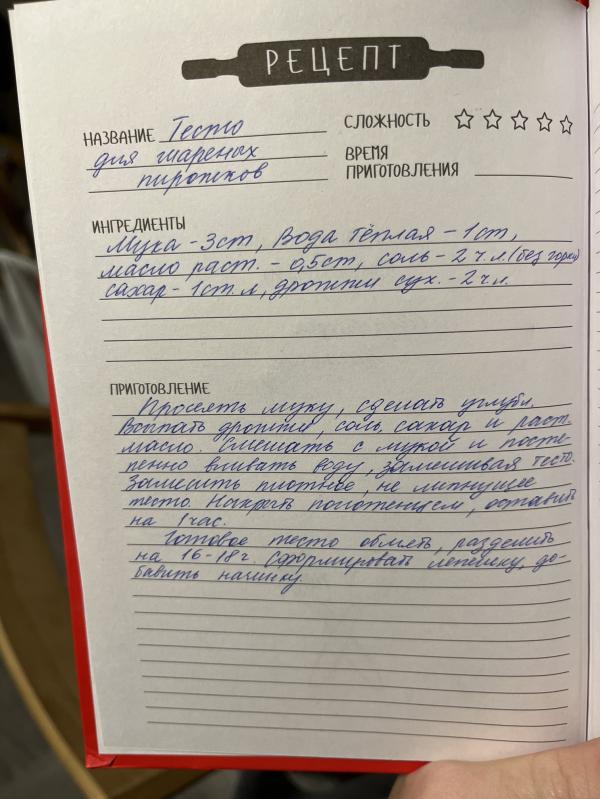 РЕЦЕПТ
НАЗВАНИЕ Тесто
для жареных
пирожков
СЛОЖНОСТЬ
ВРЕМЯ
ПРИГОТОВЛЕНИЯ
ИНГРЕДИЕНТЫ
Мука - 3ст, Вода тёплая - 1ст,
масло раст. - 0,5ст, соль - 2 ч.л. (без горки)
сахар - 1ст.л, дрожжи сух. - 2 ч.л.
ПРИГОТОВЛЕНИЕ
Просеять муку, сделать углубл.
Всыпать дрожжи, соль, сахар и раст.
масло. Смешать с мукой и посте-
пенно вливать воду, замешивая тесто.
Замесить плотное, не липнущее
тесто. Накрыть полотенцем, оставить
на 1 час.
Готовое тесто обмять, разделить
на 16-18 г. Сформировать лепешку, до-
бавить начинку.